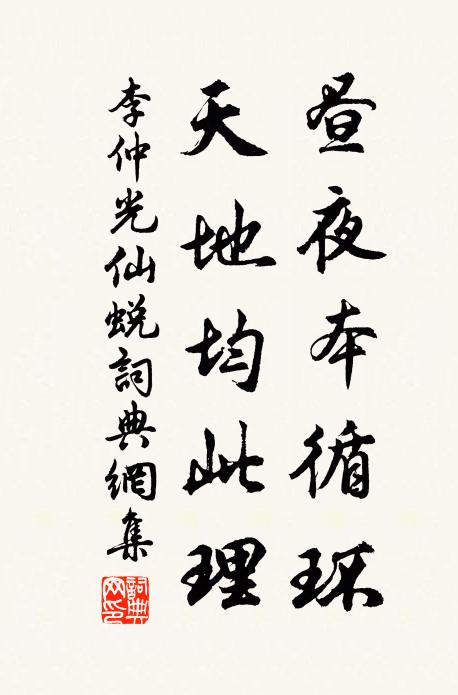 昼夜本循环
天地均此理
李仲光仙蜕詞典網集
詞典網印